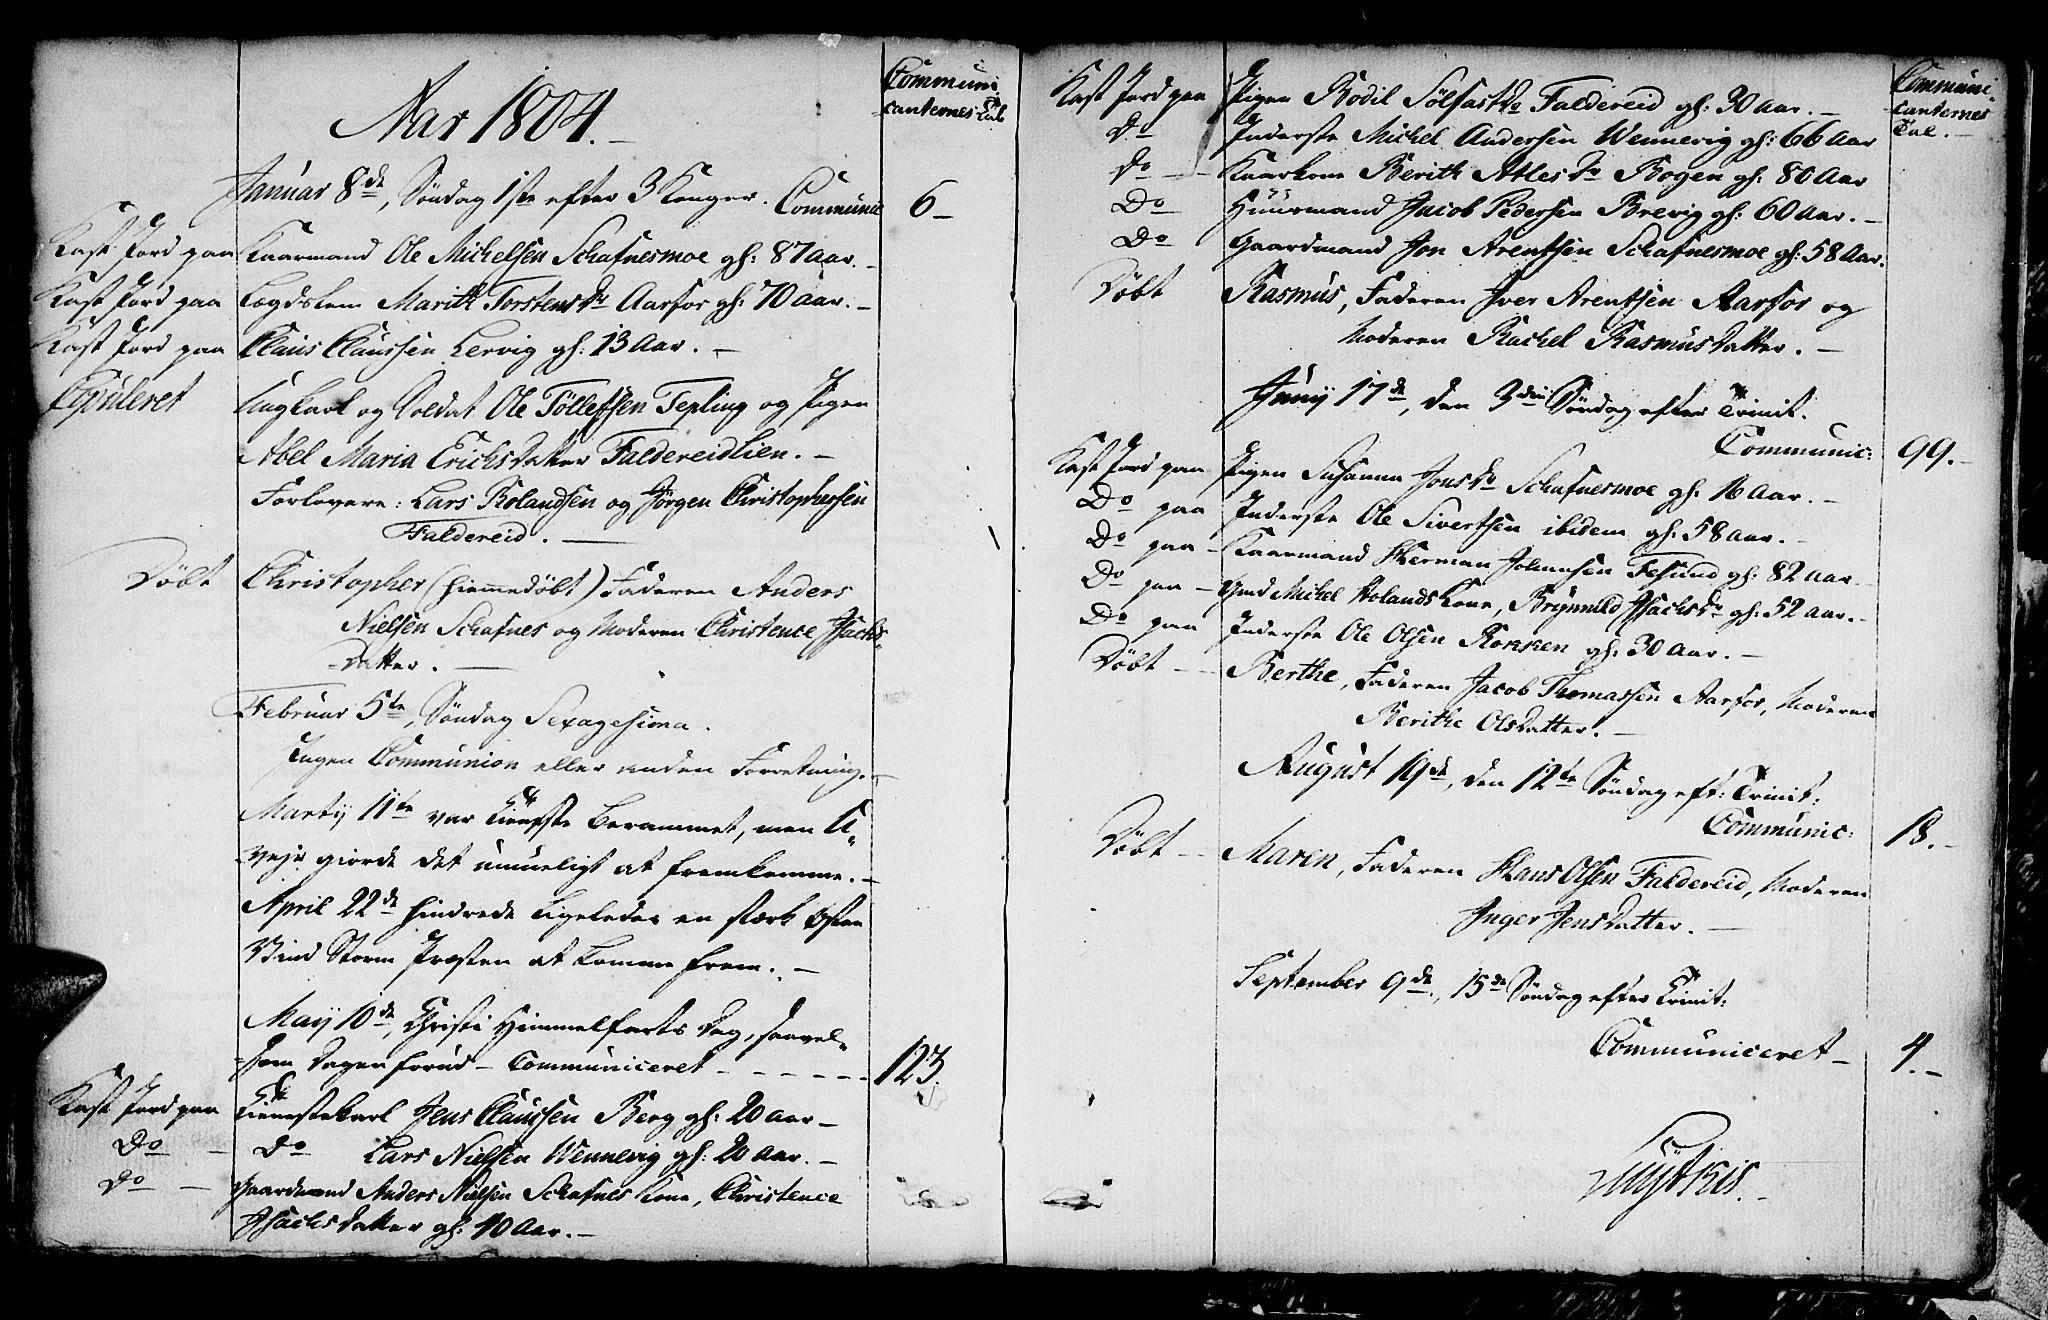 Aar 1804.
Communi-
canternes Tal
Januar 8de, Søndag 1ste efter 3 Konger. Communic 6
Kast Jord paa Kaarmand Ole Michelsen Schafnesmoe gl: 87 Aar.
Kast Jord paa Lægdslem Marith Torstensdr Aarfor gl: 70 Aar.
Kast Jord paa Claus Claussen Lervig gl: 13 Aar.
Copuleret Ungkarl og Soldat Ole Tøllefsen Tepling og Pigen
Abel Maria Erichsdatter Faldereidlien.
Forlovere: Lars Rolandsen og Jørgen Christophersen
Faldereid.
Døbt Christopher (hiemmedøbt) Faderen Anders
Nielsen Schafnes og Moderen Christence Isachs-
datter.
Februar 5te, Søndag Sexagesima.
Ingen Communion eller anden Forretning.
Martij 11te var Tieneste berammet, men U-
veyr giorde det umueligt at fremkomme.
April 22de hindrede ligeledes en stærk Østen
Vind Storm Præsten at komme frem.
Maij 10de, Christi Himmelfarts Dag, saavel-
som Dagen forud Communiceret 123.
Kast Jord paa Tienestekarl Jens Claussen Berg gl: 20 Aar
Do Do Lars Nielsen Wennevig gl: 20 Aar.
Do Gaardmand Anders Nielsen Schafnes Kone, Christence
Isachsdatter gl: 40 Aar.
Communi-
canternes
Tal.
Kast Jord paa Pigen Bodil Sølfastdr Faldereid gl: 30 Aar.
Do Inderste Michel Andersen Wennevig gl: 66 Aar
Do Kaarkone Berith Atlesdr Bogen gl: 80 Aar
Do Huusmand Jacob Pedersen Brevig gl: 60 Aar.
Do Gaardmand Jon Arentsen Schafnesmoe gl: 58 Aar.
Døbt Rasmus, Faderen Iver Arentsen Aarfor og
Moderen Rachel Rasmusdatter.
Junij 17de, den 3die Søndag efter Trinit.
Communic: 99.
Kast Jord paa Pigen Susanna Jonsdr Schafnesmoe gl: 16 Aar.
Do paa Inderste Ole Sivertsen ibidem gl: 58 Aar.
Do paa Kaarmand Herman Johansen Fesund gl: 82 Aar
Do paa Gmd Michel Holands Kone, Brynnild Isachsdr gl: 52 Aar.
Do paa Inderste Ole Olsen Rokken gl: 30 Aar.
Døbt Berthe, Faderen Jacob Thomassen Aarfor, Moderen
Berithe Olsdatter.
August 19de, den 12te Søndag eft: Trinit:
Communic: 18.
Døbt Maren, Faderen Hans Olsen Faldereid, Moderen
Inger Jensdatter.
September 9de, 15de Søndag efter Trinit:
Communiceret 4.